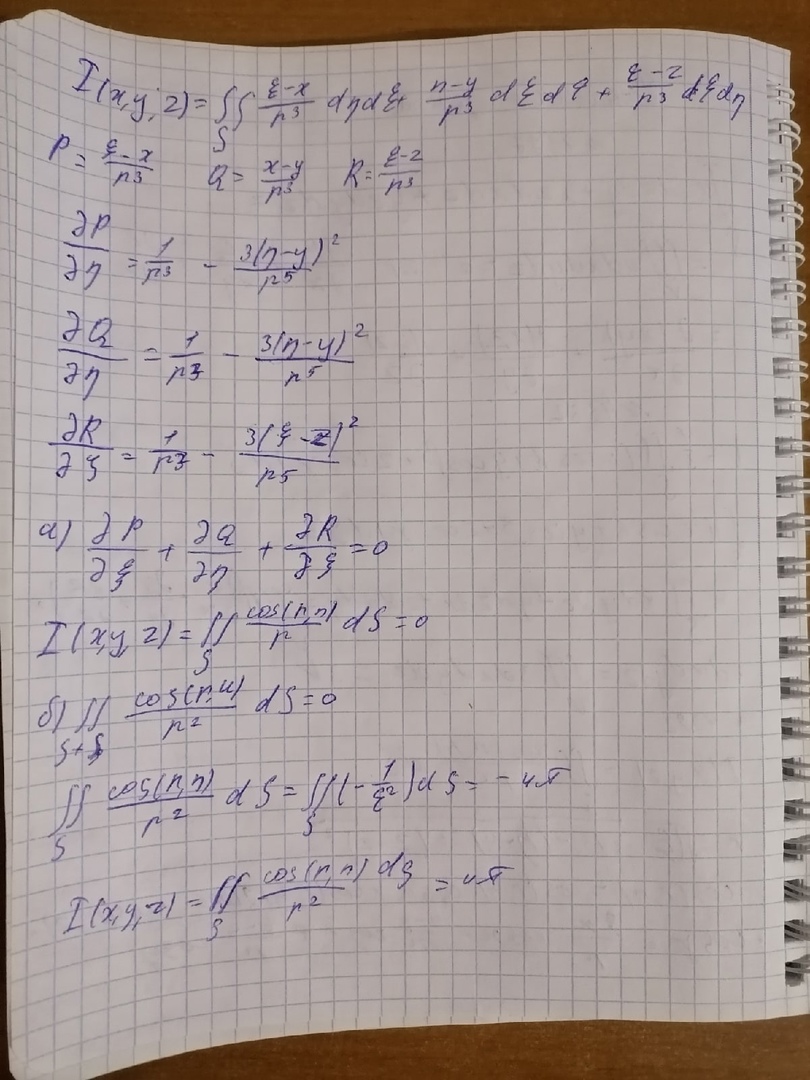 I(x,y,z) = ∬_S (ξ-x)/r³ dηdξ + (η-y)/r³ dξdς + (ξ-z)/r³ dξdη
P = (ξ-x)/r³ Q = (x-y)/r³ R = (ξ-z)/r³
∂P/∂η = 1/r³ - 3(η-y)²/r⁵
∂Q/∂η = 1/r³ - 3(η-y)²/r⁵
∂R/∂ς = 1/r³ - 3(ξ-z)²/r⁵
а) ∂P/∂ξ + ∂Q/∂η + ∂R/∂ς = 0
I(x,y,z) = ∬_S cos(r,n)/r dS = 0
б) ∬_{S+S} cos(r,n)/r² dS = 0
∬_S cos(r,n)/r² dS = ∬_S (-1/ε²) dS = -4π
I(x,y,z) = ∬_S cos(r,n) dS/r² = 4π